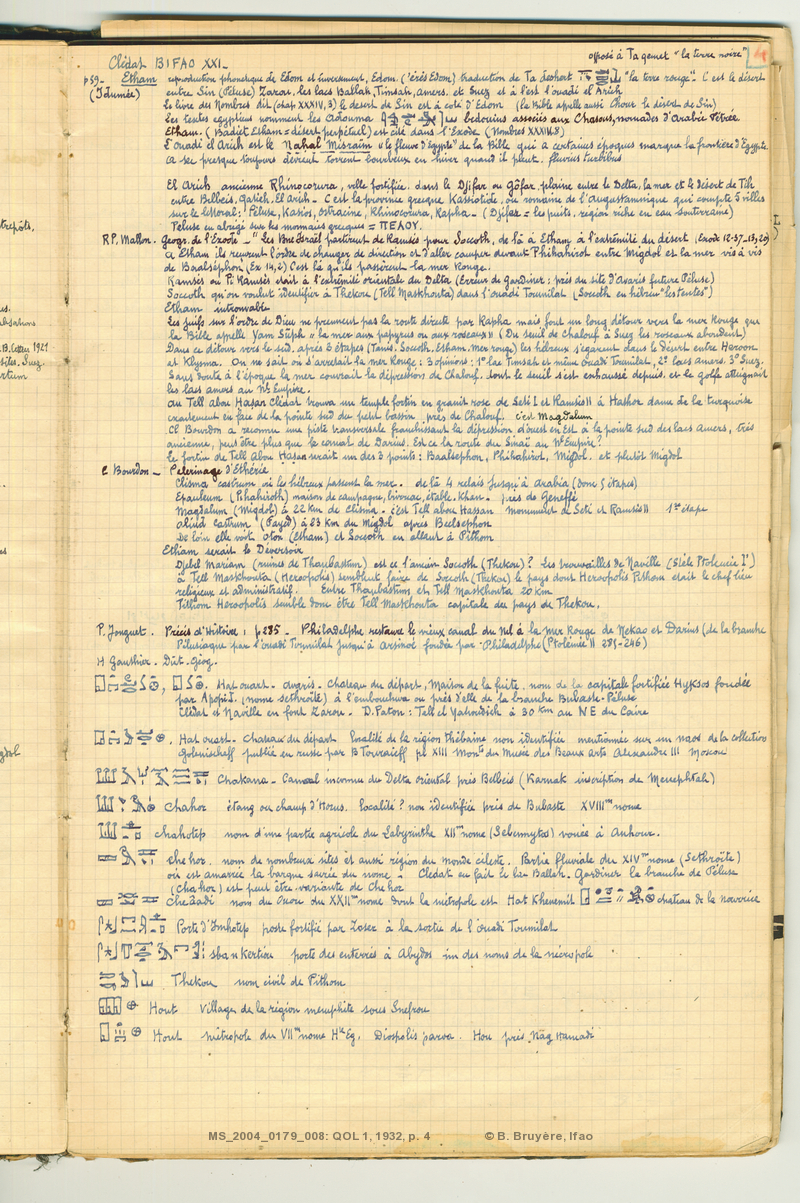 opposé à Ta gemet "la terre noire" 4
Clédat BIFAO XXI_
p59_ Etham reproduction phonetique de Edom et inversement, Edom. ('érés Edom) traduction de Ta deshert "la terre rouge". C'est le désert
(Idumée) entre Sin (Péluse) Zarou, les lacs Ballah, Timsah, amers, et Suez et à l'est l'ouadi el Arich
Le livre des Nombres dit (chap XXXIV, 3) le desert de Sin est à coté d'Edom (la Bible appelle aussi Chour le désert de Sin)
Les textes egyptiens nomment les Adouma bedouins associés aux Chasous, nomades d'Arabie Pétrée.
Etham. (Badiet Etham = désert perpétuel) est cité dans l'Exode (Nombres XXXIII.8)
L'ouadi el Arich est le Nahal Misraïm "le fleuve d'Egypte" de la Bible qui a certaines époques marqua la frontière d'Egypte.
a sec presque toujours devient torrent bourbeux en hiver quand il pleut. fluvius turbibus
El Arich ancienne Rhinocorura, ville fortifiée. dans le Djifar ou Gôfar plaine entre le Delta, la mer et le désert de Tih
entre Belbeis, Qatieh, El Arich _ C'est la province grecque Kassiotide, ou romaine de l'Augustamnique qui compte 5 villes
sur le littoral: Peluse, Kasios, Ostracine, Rhinocorura, Rapha _ (Djifar = les puits, region riche en eau souterraine)
Peluse en abrégé sur les monnaies grecques = ΠΕΛΟΥ.
RP. Mallon. Geogr. de l'Exode _ "Les Bne Israël partirent de Ramsès pour Soccoth, de là à Etham à l'extrémité du désert (Exode 12-37_13, 20)
a Etham ils reçurent l'ordre de changer de direction et d'aller camper devant Phihahirot entre Migdol et la mer vis à vis
de Baalséphon (Ex 14,2) C'est là qu'ils passèrent la mer Rouge.
Ramsès ou Pi Ramsès était à l'extrémité orientale du Delta (Erreur de Gardiner: près du site d'Avaris future Péluse)
Soccoth qu'on voulut identifier à Thekou (Tell Maskhouta) dans l'ouadi Toumilat (Soccoth en hébreu "les tentes")
Etham introuvable
Les juifs sur l'ordre de Dieu ne prennent pas la route directe par Rapha mais font un long détour vers la mer Rouge que
la Bible appelle Yam Sûph "la mer aux papyrus ou aux roseaux" (Du seuil de Chalouf à Suez les roseaux abondent)
Dans ce détour vers le sud, après 3 étapes (Tanis. Soccoth. Etham. mer rouge) les hébreux s'egarent dans le désert entre Heroon
et Klysma. On ne sait où s'arretait la mer Rouge: 3 opinions: 1° lac Timsah et même Ouadi Toumilat, 2° lacs amers. 3° Suez.
Sans doute à l'époque la mer couvrait la dépression de Chalouf. dont le seuil s'est exhaussé depuis. et le golfe atteignait
les lacs amers au Nl Empire.
au Tell Abou Hasan Clédat trouva un temple fortin en granit rose de Seti I et Ramsès II à Hathor dame de la turquoise
exactement en face de la pointe sud du petit bassin, près de Chalouf. c'est Magdalum
Cl Bourdon a reconnu une piste transversale franchissant la dépression d'ouest en Est à la pointe sud des lacs Amers, très
ancienne, peut être plus que le canal de Darius. Est ce la route du Sinaï au Nl Empire?
Le fortin de Tell Abou Hasan serait un des 3 points: Baalsephon, Phihahirot, Migdol. et plutôt Migdol
C Bourdon _ Pelerinage d'Ethérie
Clisma castrum où les hébreux passent la mer. de là 4 relais jusqu'à Arabia (donc 5 étapes)
Epauleum (Pihahiroth) maison de campagne, bivouac, étable. Khan. près de Geneffé
Magdalum (Migdol) à 22 Km de Clisma. c'est Tell abou Hasan monument de Seti et Ramsès II 1re étape
Castrum (Fayed) à 23 Km du Migdol après Beelsephon
De loin elle voit Oton (Etham) et Soccoth en allant à Pithom
Etham serait le Deversoir
Djebel Mariam (ruines de Thaubastum) est ce l'ancien Soccoth (Thekou)? Les trouvailles de Naville (Stèle Ptolemée I')
à Tell Maskhouta (Heroopolis) semblent faire de Soccoth (Thekou) le pays dont Heroopolis Pithom était le chef lieu
religieux et administratif. Entre Thaubastum et Tell Maskhouta 20 Km
Pithom Heroopolis semble donc être Tell Maskhouta capitale du pays de Thekou.
P. Jouguet. Précis d'Histoire, p285 _ Philadelphe restaure le vieux canal du Nil à la mer Rouge de Nekao et Darius (de la branche
Pélusiaque par l'ouadi Toumilat jusqu'à Arsinoé fondée par Philadelphe (Ptolémée II 285-246)
H Gauthier _ Dict. Géog.
Hat ouart _ avaris _ chateau du départ, Maison de la fuite, nom de la capitale fortifiée Hyksos fondée
par Apopi I. (nome sethroïte) à l'embouchure ou près d'elle de la branche Bubaste-Péluse
Clédat et Naville en font Zarou. D. Paton: Tell el Yahoudieh à 30 Km au NE du Caire
Hat ouart _ chateau du départ localité de la région thébaine non identifiée mentionnée sur un naos de la collection
Golenischeff publié en russe par B Touraieff pl XIII Monts du Musée des Beaux arts Alexandre III Moscou
Chakana _ Canal inconnu du Delta oriental près Belbeis (Karnak inscription de Menephtah)
Chahor étang ou champ d'Horus. localité? non identifiée près de Bubaste XVIIIme nome
Chahotep nom d'une partie agricole du Labyrinthe XIIme nome (Sebennytos) vouée à Anhour.
Che hor. nom de nombreux sites et aussi région du monde céleste. Partie fluviale du XIVme nome (Sethroïte)
où est amarrée la barque sacrée du nome _ Cledat en fait le lac Ballah. Gardiner la branche de Péluse
(Chahor) est peut être variante de Che hor
nom du Ouou du XXIIme nome dont la métropole est Hat Khenemit chateau de la nourrice
Porte d'Imhotep poste fortifié par Zoser à la sortie de l'ouadi Toumilat
sba n Kertiou porte des enterrés à Abydos un des noms de la nécropole
Thekou nom civil de Pithom
Hout Village de la région memphite sous Snefrou
Hout métropole du VIIme nome Hte Eg. Diospolis parva. Hou près Nag Hamadi
MS_2004_0179_008: QOL 1, 1932, p. 4 © B. Bruyère, Ifao